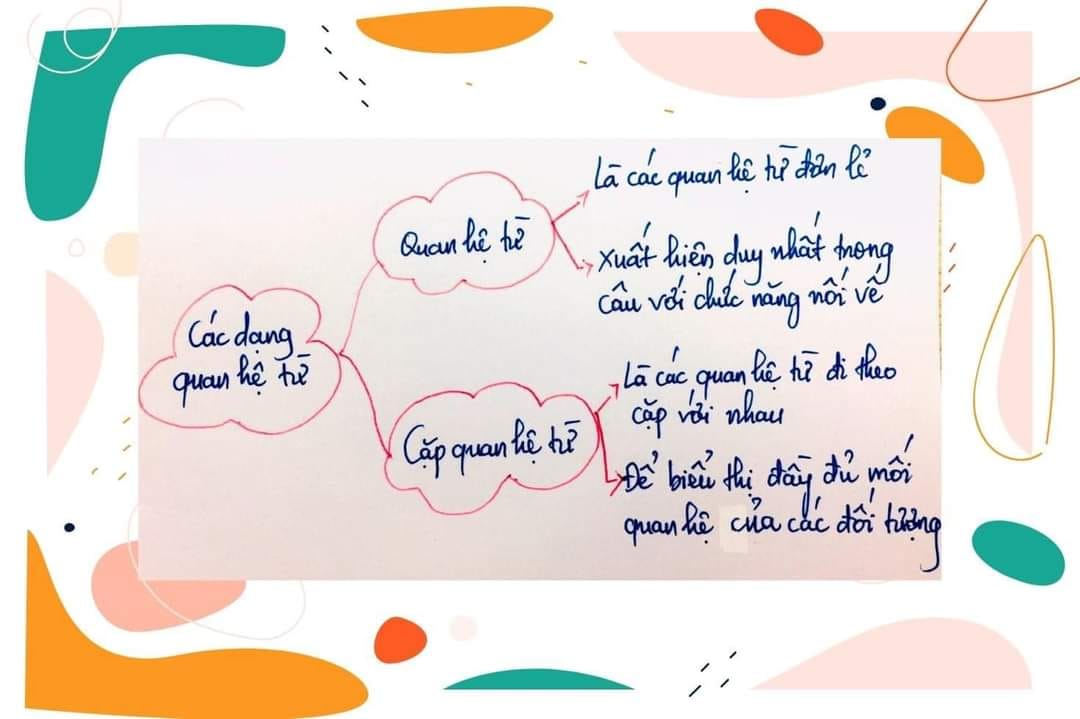 Các dạng
quan hệ từ
Quan hệ từ
Là các quan hệ từ đơn lẻ
Xuất hiện duy nhất trong
câu với chức năng nối vế
Cặp quan hệ từ
Là các quan hệ từ đi theo
cặp với nhau
Để biểu thị đầy đủ mối
quan hệ của các đối tượng